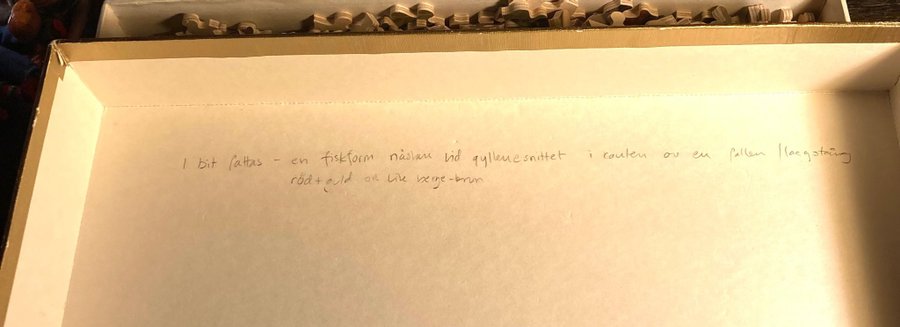 1 bit fattas - en fiskform nästan vid gyllene snittet i kanten av en fallen
röd + guld och lite beige-brun